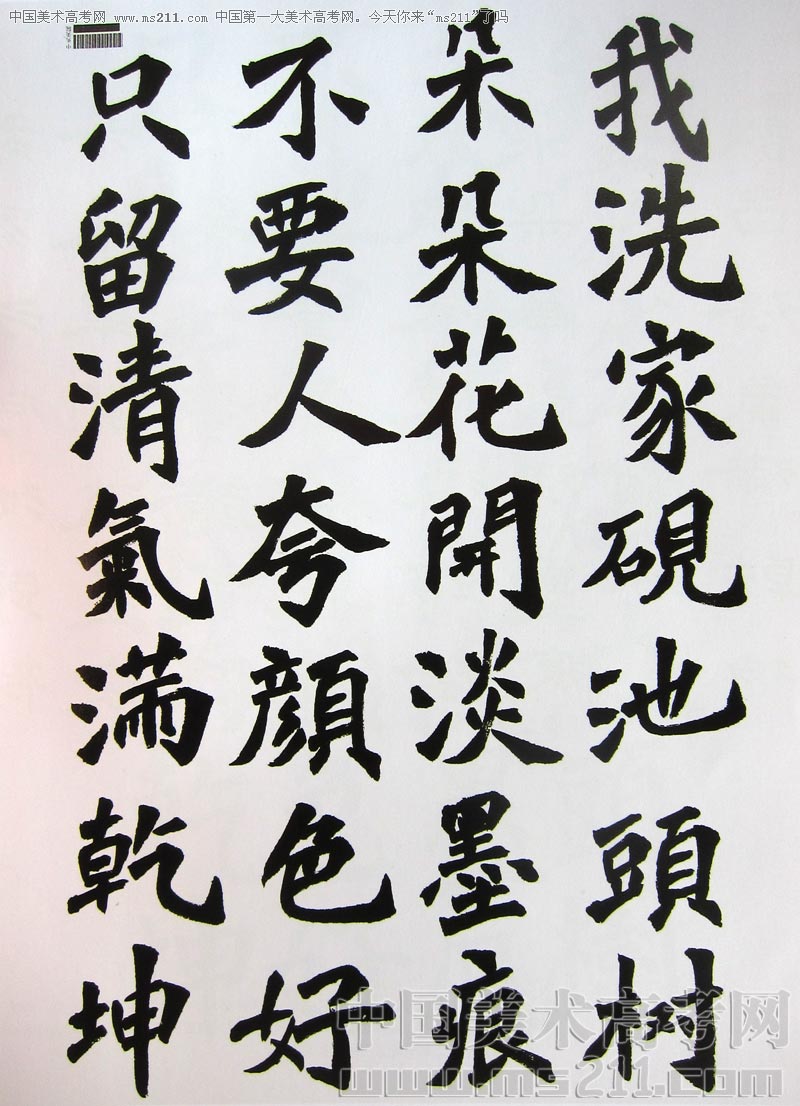 中国美术高考网 www.ms211.com 中国第一大美术高考网。今天你来“ms211”了吗
我洗家硯池頭树
朵朵花開淡墨痕
不要人夸顔色好
只留清氣满乾坤
中国美术高考网
www.ms211.com